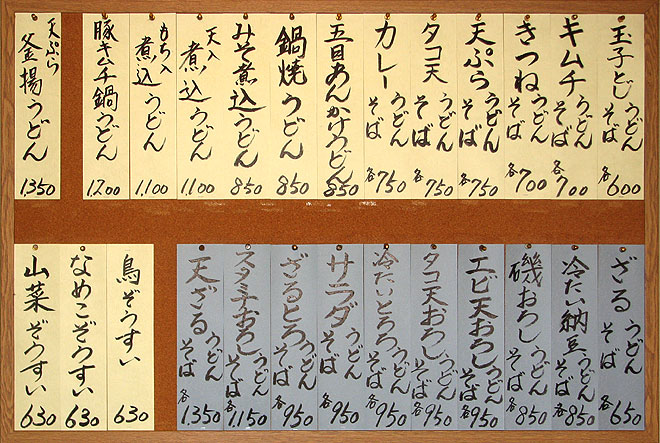 玉子とじ うどん そば 各600
キムチ うどん そば 各700
きつね うどん そば 各700
天ぷら うどん そば 各750
タコ天 うどん そば 各750
カレー うどん そば 各750
五目あんかけうどん 850
鍋焼うどん 850
みそ煮込うどん 850
天入 煮込うどん 1,100
もち入 煮込うどん 1,100
豚キムチ鍋うどん 1,200
天ぷら 釜揚うどん 1,350
ざる うどん そば 各650
冷たい納豆 うどん そば 各850
磯おろし うどん そば 各850
エビ天おろし うどん そば 各950
タコ天おろし うどん そば 各950
冷たいとろろ うどん そば 各950
サラダ うどん そば 各950
ざるとろ うどん そば 各950
スタミナおろし うどん そば 各1,150
天ざる うどん そば 各1,350
鳥ぞうすい 630
なめこぞうすい 630
山菜ぞうすい 630